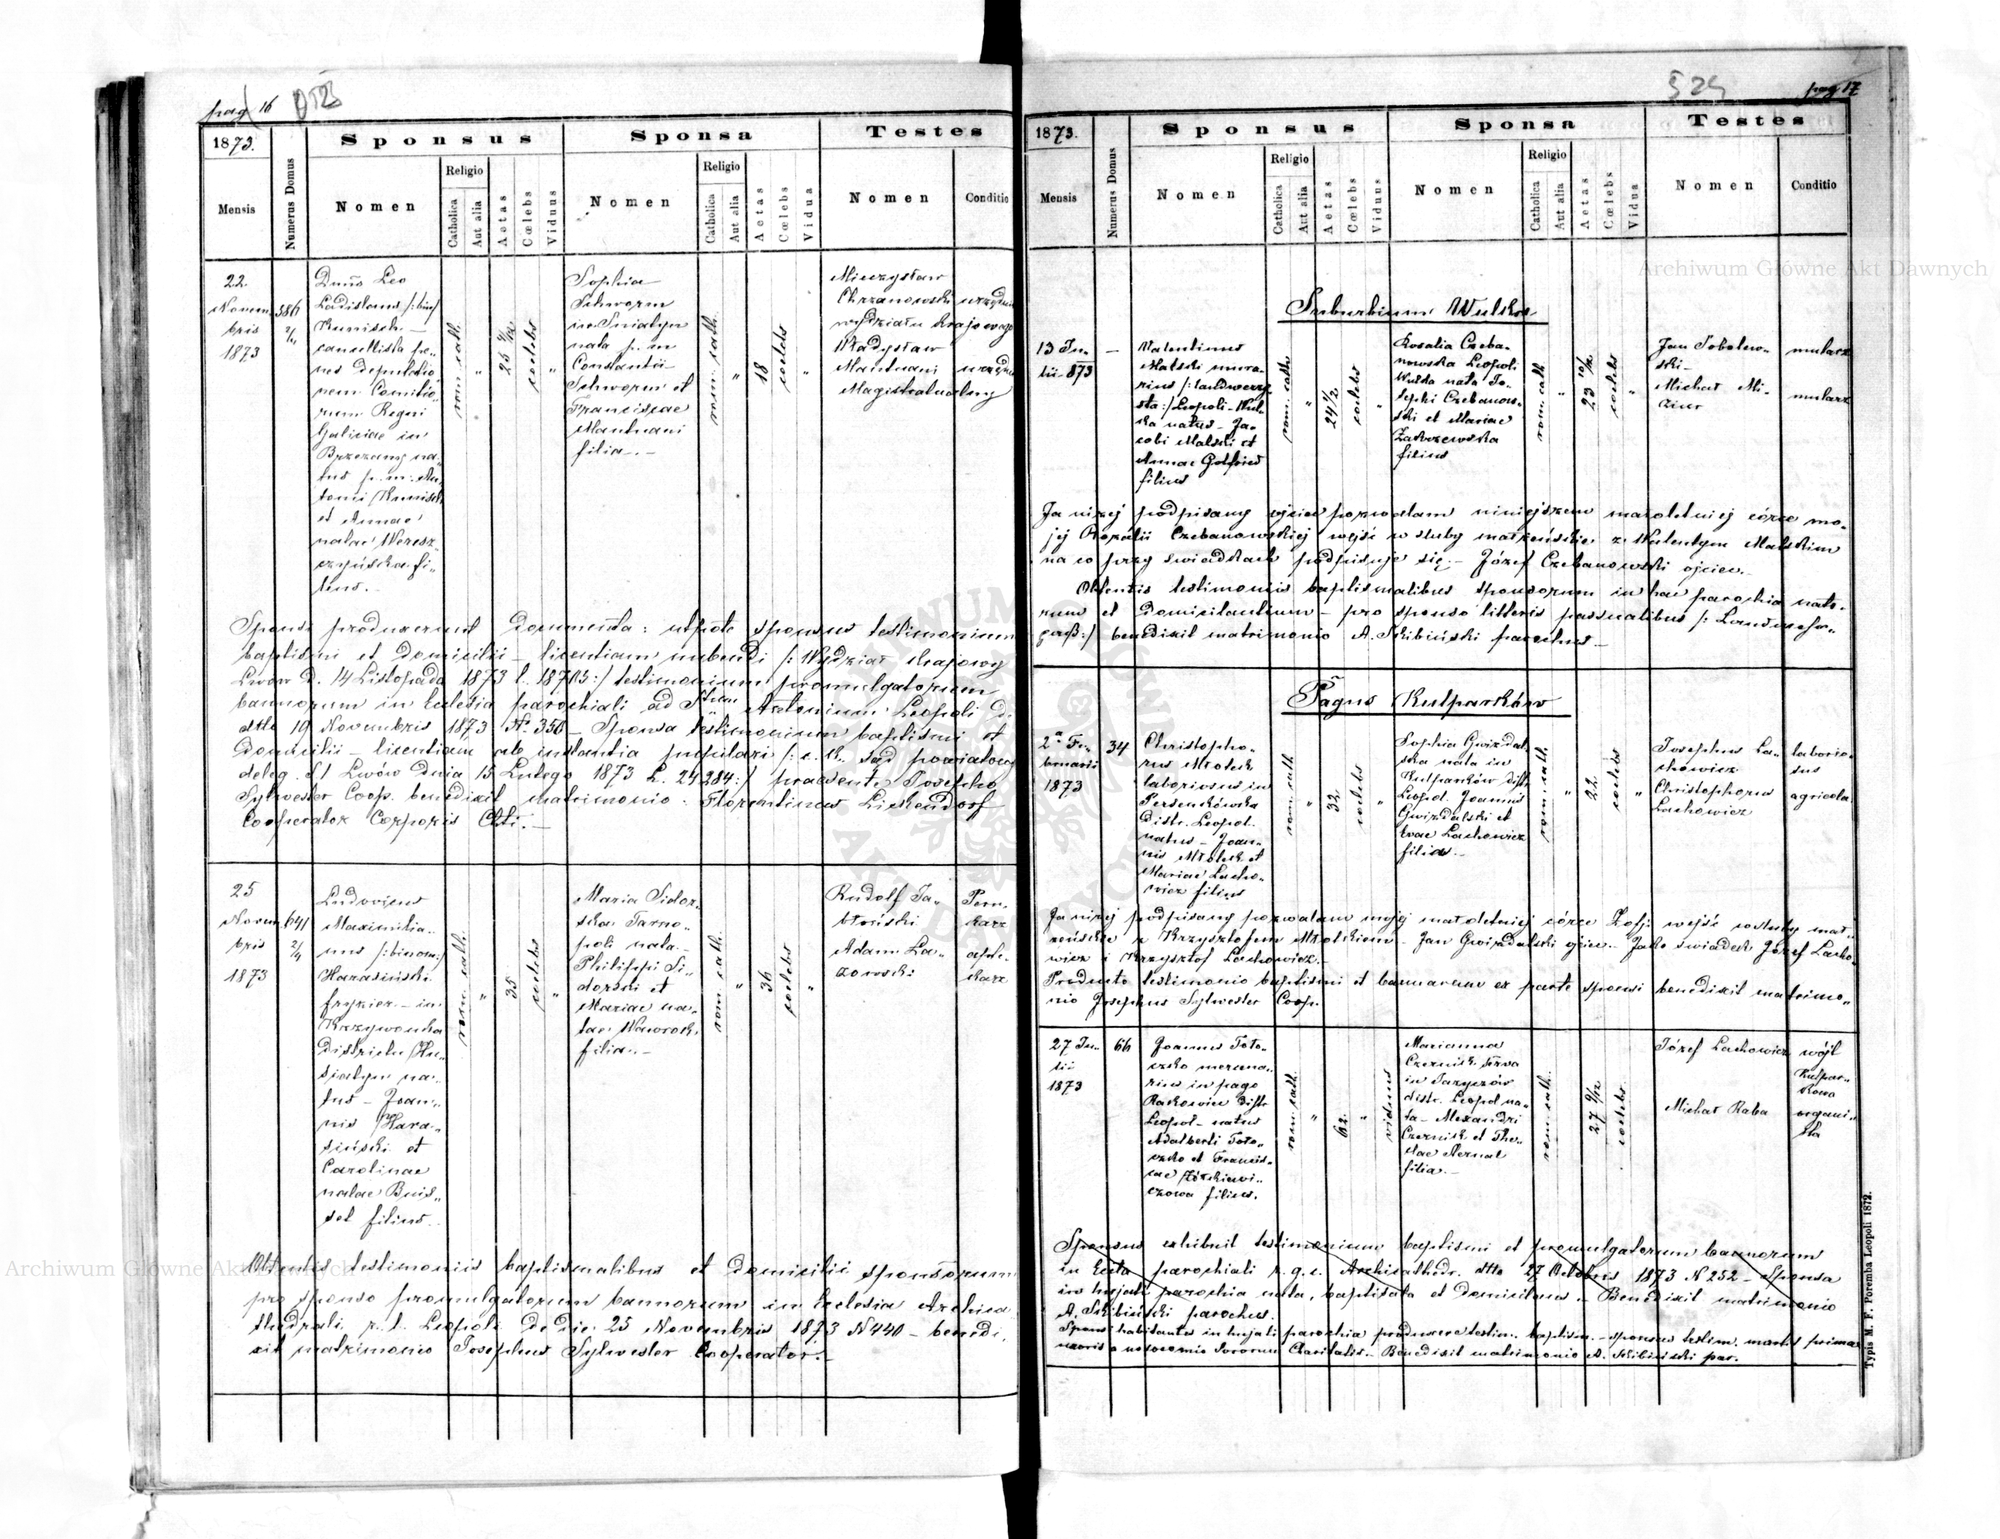 pag 16
1873.
Sponsus
Sponsa
Testes
Mensis
Numerus Domus
Nomen
Religio
Catholica
Aut alia
Aetas
Cœlebs
Viduus
Nomen
Religio
Catholica
Aut alia
Aetas
Cœlebs
Vidua
Nomen
Conditio
22
Novem
bris
1873
386
2/4
Leo
Ladislaus /: bin:/
Kunisch
cancellista pe-
nes deputatio-
nem Comitio-
rum Regni
Galiciae in
Brzezany na-
tus p. m. An-
tonii Kunisch
et Annae
natae Weresz-
czyńska fi-
lius.-
rom. cath.
"
25
coelebs
"
Sophia
Schworm
in Sniatyn
nata p. m.
Constantii
Schworm et
Franciscae
Mantuani
filia.-
rom. cath.
"
18
coelebs
"
Mieczysław
Chrzanowski urzędnik
wydziału krajowego
Władysław
Mantuani
Magistratualny
Sponsi produxerunt documenta: utpote sponsus testimonium
baptismi et domicilii - licentiam nubendi /: Wydział krajowy
Lwów d. 14 Listopada 1873 l. 18705:/ testimonium promulgatorum
bannorum in Ecclesia parochiali ad Antonium Leopoli d.
dtto 19 Novembris 1873 N. 356 - Sponsa testimonium baptismi et
domicilii - licentiam ab instantia pupillari /: c. k. sąd powiatowy
deleg. S I Lwów dnia 15 Lutego 1873 L. 24284:/ Josepho
Sylvester Coop. benedixit matrimonio. Florentinus
Cooperator Corporis Chti.-
25
Novem
bris
1873
641
2/4
Ludovicus
Maximilia-
nus /: binom:/
Harasiński
fryzier - in
Krzywenka
districtu Hu-
siatyn na-
tus - Joan-
nis Hara-
siński et
Carolinae
natae
filius.
rom. cath.
"
35
coelebs
"
Maria Sidor-
ska Tarno-
poli nata
Philippi Si-
dorski et
Mariae na-
tae Naworok
filia.-
rom. cath.
"
36
coelebs
"
Rudolf Ja-
błoński
Adam La-
zowski
apte-
karz
Obtentis testimoniis baptismalibus et domicilii sponsorum
pro sponso promulgatorum bannorum in Ecclesia Archica
thedrali r. l. Leopoli de die 25 Novembris 1873 N 440 - benedi-
xit matrimonio Josephus Sylvester Cooperator.-
524
pag 17
1873.
Sponsus
Sponsa
Testes
Mensis
Numerus Domus
Nomen
Religio
Catholica
Aut alia
Aetas
Cœlebs
Viduus
Nomen
Religio
Catholica
Aut alia
Aetas
Cœlebs
Vidua
Nomen
Conditio
Suburbium Wulka
13 Ju-
lii 873
-
Valentinus
Malski mura-
rius /: landwerzy-
sta:/ Leopoli - Wul-
ka natus - Ja-
cobi Malski et
Annae Gotfried
filius
rom. cath.
"
24 1/2
coelebs
"
Rosalia Czeba-
nowska Leopoli
Wulka nata Jo-
sephi Czebanow-
ski et Mariae
Zakrzewska
filius
rom. cath.
"
23 10/12
coelebs
"
Jan Sobolew-
ski -
mularz
Michał Mi-
mularz
Ja niżej podpisany ojciec pozwalam niniejszem małoletniej córce mo-
jej Rozalii Czebanowskiej wejść w śluby małżeńskie z Walentym Malskim
na co przy świadkach podpisuje się.- Józef Czebanowski ojciec.-
Obtentis testimoniis baptismalibus sponsorum in hac parochia nato-
rum et domicilantium - pro sponso litteris passualibus /: Landwehr-
paß:/ benedixit matrimonio A. Skibiński parochus.-
Pagus Kulparków
2a Fe-
bruarii
1873
34
Christopho-
rus Mrołek
laboriosus in
Persenkówka
distr. Leopol.
natus - Joan-
nis Mrołek et
Mariae Lacho-
wicz filius
rom. cath
"
32
coelebs
"
Sophia Gwizdal-
ska nata in
Kulparków dist.
Leopol. Joannis
Gwizdalski et
Evae Lachowicz
filia.-
rom. cath.
"
22
coelebs
"
Josephus La-
chowicz
laborio-
sus
Christophorus
Lachowicz
agricola
Ja niżej podpisany pozwalam mojej małoletniej córce Zofji wejść w śluby mał-
żeńskie z Krzysztofem Mrołkiem - Jan Gwizdalski ojciec. Jako świadek Józef Lacho-
wicz i Krzysztof Lachowicz.-
Producto testimonio baptismi et bannorum ex parte sponsi benedixit matrimo-
nio Josephus Sylvester Coop.
27 Ju-
lii
1873
66
Joannes Toto-
czko mercena-
rius in pago
Rakowiec distr
Leopol - natus
Adalberti Toto-
czko et Francis-
cae
filius.
rom. cath.
"
62
"
viduus
Marianna
Czernik
in
distr. Leopol na-
ta - Alexandri
Czernik et The-
clae
filia.-
rom. cath.
"
27 9/12
coelebs
"
Józef Lachowicz
wójt
Kulpar-
kowa
Michał Raba
organi-
sta
Sponsus exhibuit testimonium baptismi et promulgatorum bannorum
in Eccla parochiali r. g. c. Archicathedr. dtto 27 Octobris 1873 N 252 - Sponsa
in hujati parochia nata, baptisata et domiciliata - Benedixit matrimonio
A. Skibiński parochus.
Sponsi habitantes in hujati parochia produxere testim. baptism. - sponsus testim. mortis primae
uxoris e nosocomio Sororum Charitatis.- Benedixit matrimonio A. Skibiński par.
Typis M. F. Poremba Leopoli 1872.
Archiwum Główne Akt Dawnych
Archiwum Główne Akt Dawnych